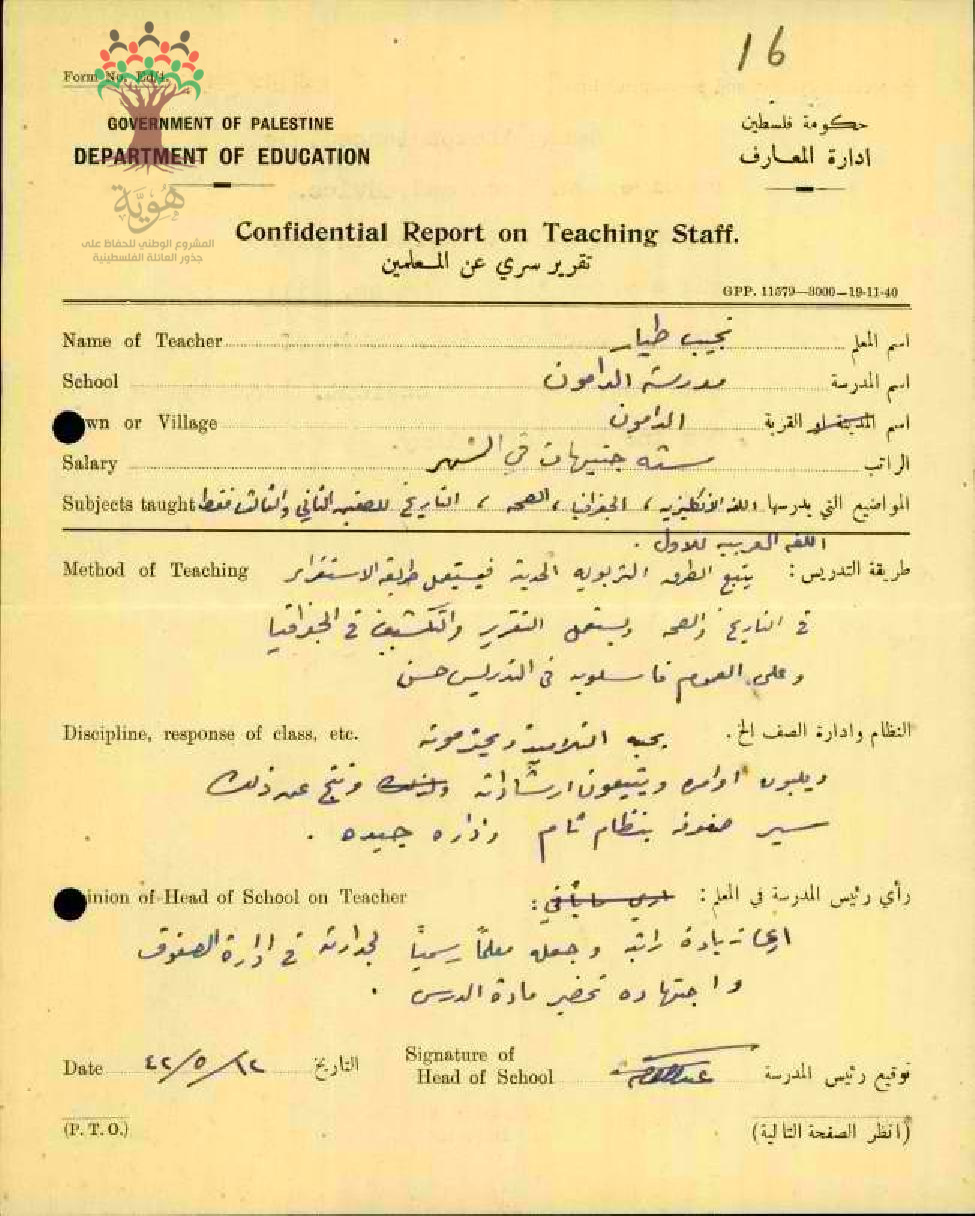 16
Form No. Ed/4.
GOVERNMENT OF PALESTINE
حكومة فلسطين
DEPARTMENT OF EDUCATION
ادارة المعارف
هُوِيَّة
المشروع الوطني للحفاظ على
جذور العائلة الفلسطينية
Confidential Report on Teaching Staff.
تقرير سري عن المعلمين
GPP. 11579—3000—19-11-40
Name of Teacher نجيب طيار اسم المعلم
School مدرسة الدامون اسم المدرسة
wn or Village الدامون اسم المدينة او القرية
Salary سته جنيهات في الشهر الراتب
Subjects taught المواضيع التي يدرسها اللغه الانكليزيه ، الجغرافيا ، الصحه ، التاريخ للصفين الثاني والثالث فقط
اللغه العربيه للاول .
Method of Teaching طريقة التدريس : يتبع الطرق التربويه الحديثه فيستعمل طريقة الاستقراء
في التاريخ والصحه ويستعمل التقرير والتكشيف في الجغرافيا
وعلى العموم فاسلوبه في التدريس حسن
Discipline, response of class, etc. النظام وادارة الصف الخ . يحبه التلاميذ ويحترمونه
ويلبون اوامره ويتبعون ارشاداته ونتج عن ذلك
سير صفوفه بنظام تام واداره جيده .
inion of Head of School on Teacher رأي رئيس المدرسة في المعلم :
زيادة راتبه وجعله معلماً رسمياً لجدارته في ادارة الصفوف
واجتهاده تحضير مادة الدرس .
Date ١٢/٥/٤٢ التاريخ
Signature of
Head of School توقيع رئيس المدرسة
(P. T. O.) (انظر الصفحة التالية)